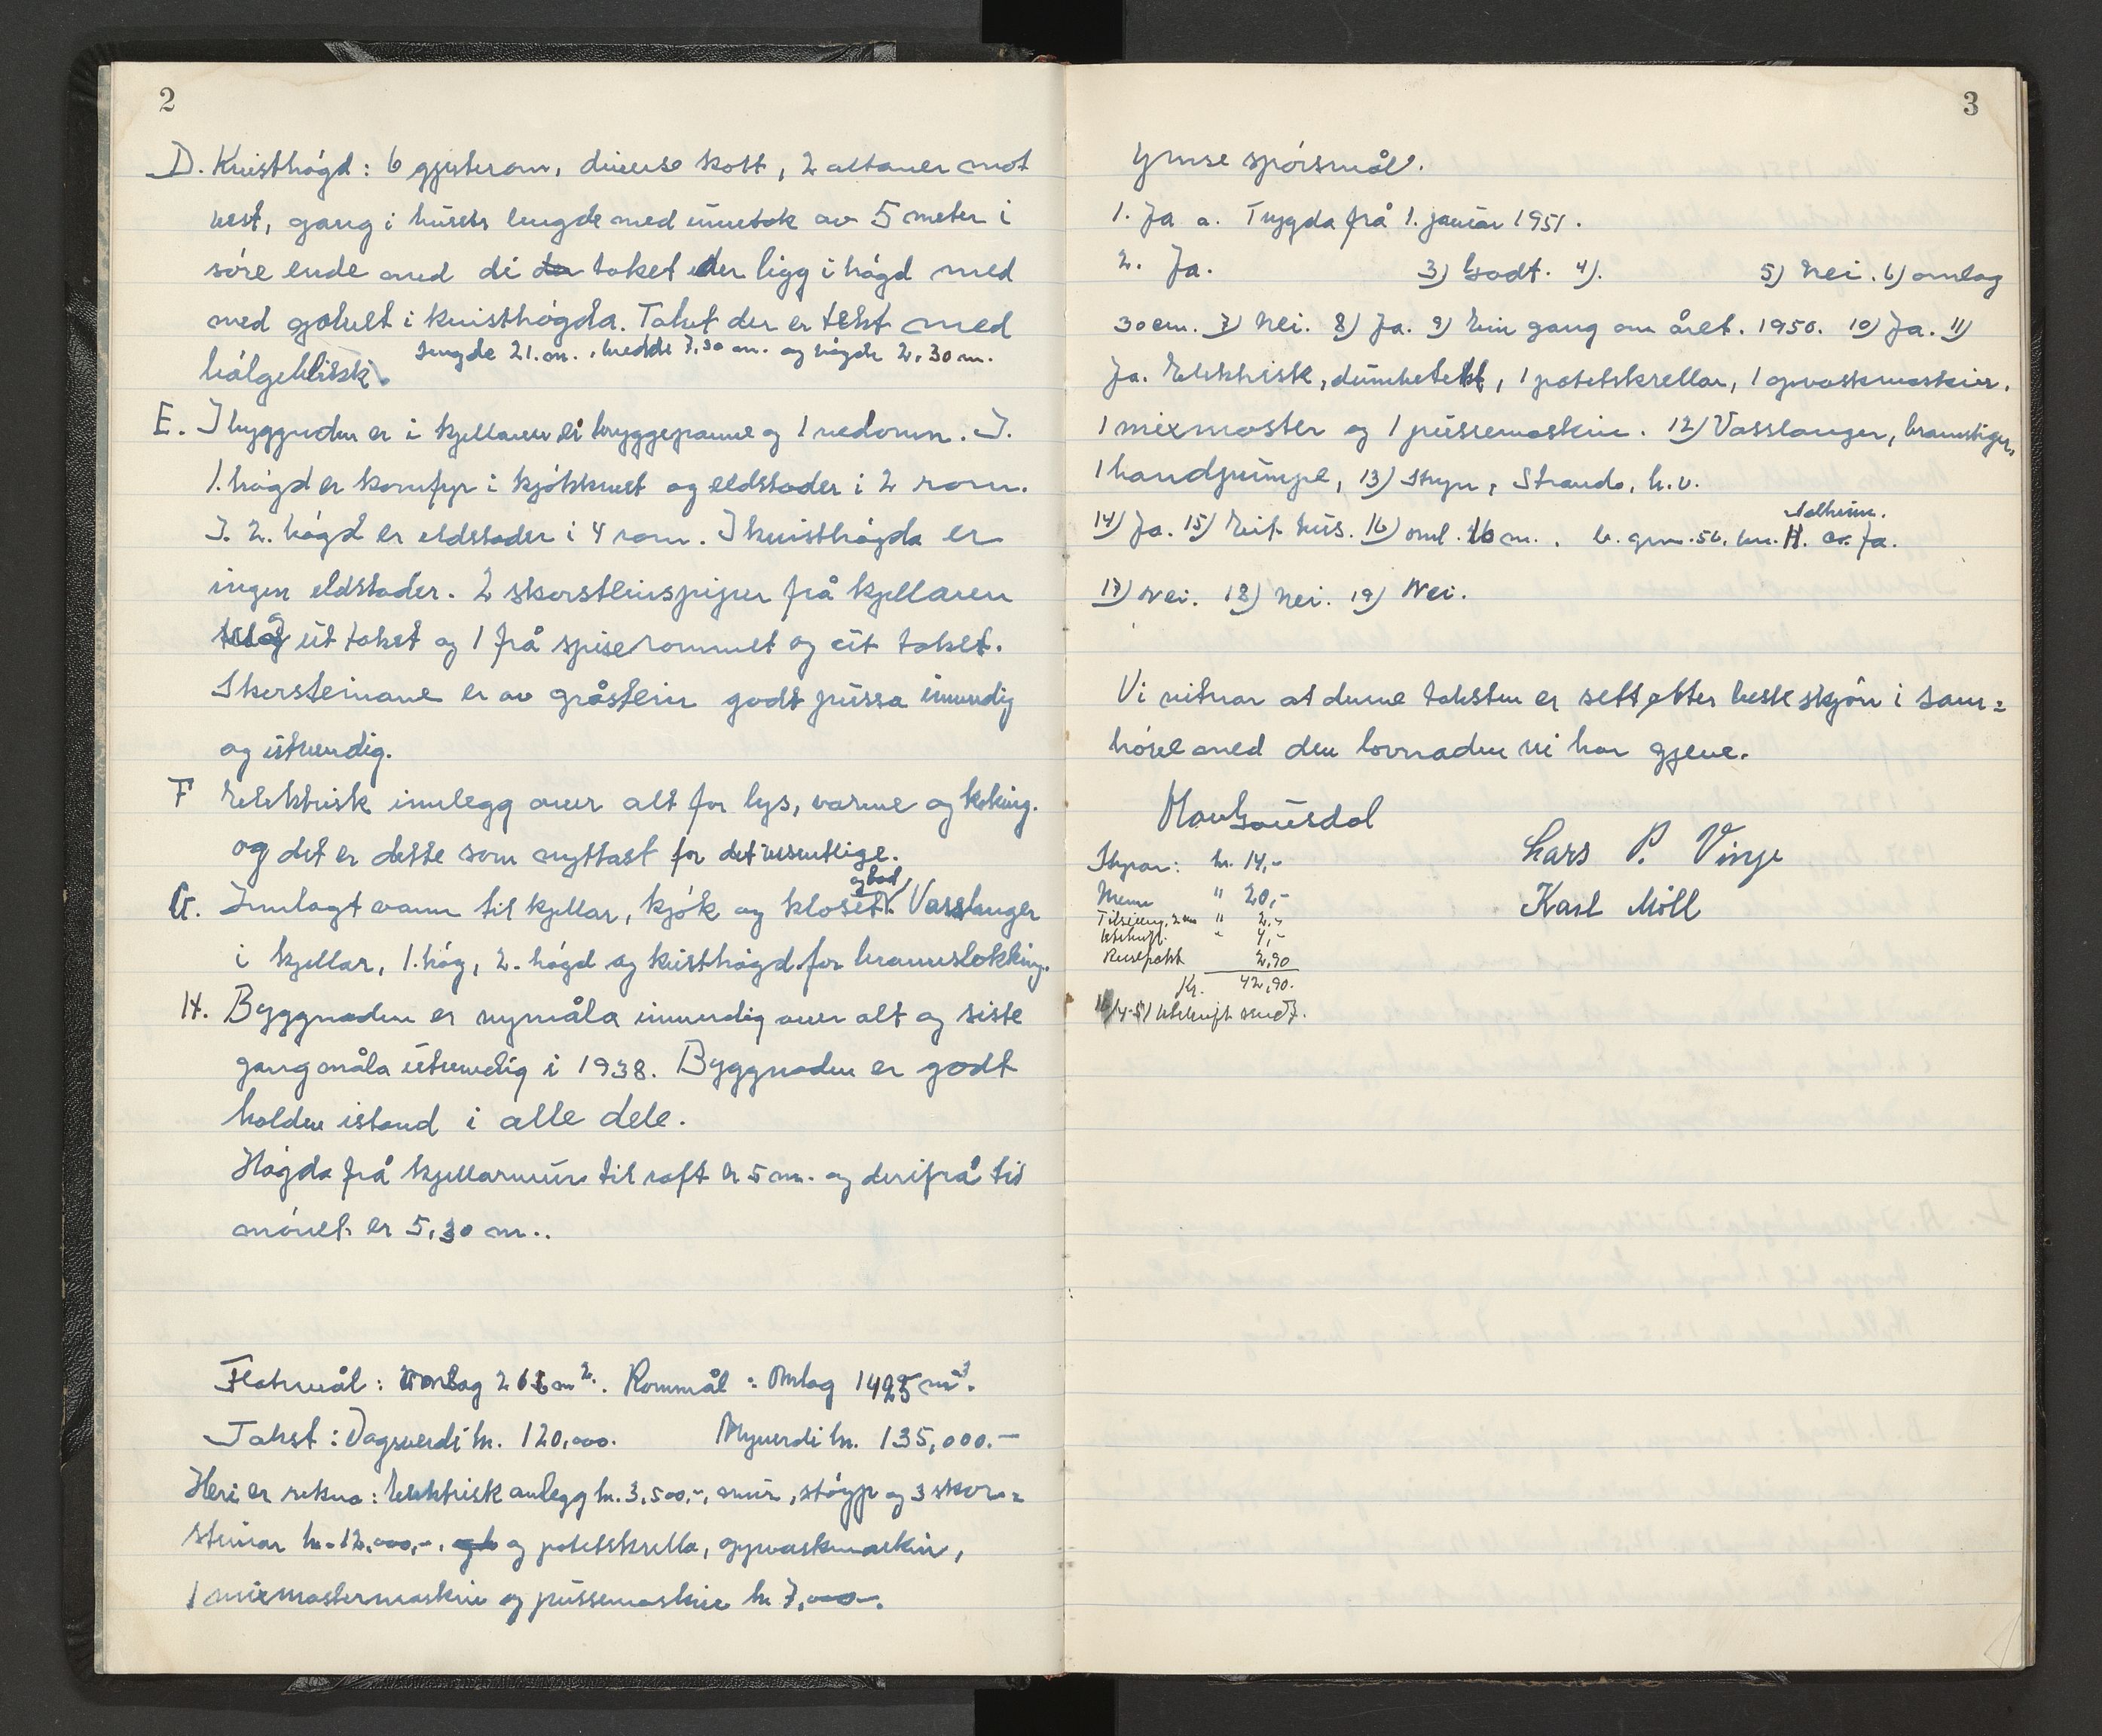 2
D. Kvisthögd: 6 gjesterom, diverse kott, 2 altaner mot
vest, gang i husets lengde med unntak av 5 meter i
söre ende med di taket der ligg i högd med
med golvet i kvisthögda. Taket der er tekt med
Lengde 21.m., bredde 7,30 m. og högde 2,30 m.
bölgeblikk.
E. I byggnden er i kjellaren ei bryggepanne og 1 vedomn. I.
1. högd er komfyr i kjökknet og eldstader i 2 rom.
I. 2. högd er eldstader i 4 rom. I kvisthögda er
ingen eldstader. 2 skorsteinspiper frå kjellaren
og ut taket og 1 frå spiserommet og ut taket.
Skorsteinane er av gråstein godt pussa innvendig
og utvendig.
F Elektrisk innlegg over alt for lys, varme og koking.
og det er dette som nyttast for det vesentlige.
og bad
G. Innlagt vann til kjellar, kjök og kloset. Vasslanger
i kjellar, 1. hög, 2. högd og kvisthögd for brannslokking.
H. Byggnaden er nymåla innvendig over alt og siste
gang måla utvendig i 1938. Byggnaden er godt
holden istand i alle dele.
Högda frå kjellarmur til raft er 5 m. og derifrå til
mönet er 5,30 m..
Flatemål: Omlag m². Rommål: Omlag 1425 m³.
Takst: Dagsverdi kr. 120,000. Nyverdi kr. 135,000.-
Heri er rekna: Elektrisk anlegg kr. 3,500,-, mur, stöyp og 3 skor=
steinar kr. 12,000,-, og potetskrella, opvaskmaskin,
1 mixmastermaskin og pussemaskin kr 7,000.
3
Ymse spörsmål.
1. Ja a. Trygda frå 1. januar 1951.
2. Ja. 3) Godt. 4). 5) Nei. 6) omlag
30 cm. 7) Nei. 8) Ja. 9) Ein gang om året. 1950. 10) Ja. 11)
Ja. Elektrisk, 1 potetskrellar, 1 opvaskmaskin,
1 mixmaster og 1 pussemaskin. 12) Vasslanger, brannstiger,
1 handpumpe, 13) Stryn, Stranda, h.v.
Solheim.
14) Ja. 15) Eit hus. 16) oml. 16 m., b. gnr. 56, bnr. H. a. Ja.
17) Nei. 18) Nei. 19) Nei.
Vi vitnar at denne taksten er sett etter beste skjön i sam=
hörve med den lovnaden vi har gjeve.
Gausdal
Lars P. Vinje
Karl Möll
Styrar: kr. 14,-
Menn " 20,-
Tilseiing, 2 mn " 2,-
Utskrift. " 4,-
Reisepakt 2,90
Kr. 42,90.
16/4-51 Utskrift sendt.